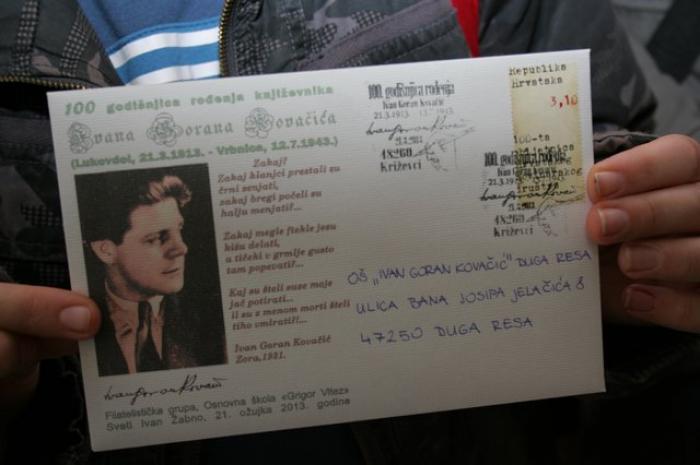 100 godišnjica rođenja književnika
Ivana Gorana Kovačića
(Lukovdol, 21.3.1913. - Vrbnica, 12.7.1943.)
Zakaj?
Zakaj klanjci prestali su
črni senjati,
zakaj bregi počeli su
halju menjati?...
Zakaj megle ftekle jesu
kišu delati,
a tičeki v grmlje gusto
tam popevati?...
Kaj su šteli suze moje
jač potirati...
il su z menom morti šteli
tiho vmirati?!...
Ivan Goran Kovačić
Zora,1931.
Ivan Goran Kovačić
Filatelistička grupa, Osnovna škola «Grigor Vitez»
Sveti Ivan Žabno, 21. ožujka 2013. godine
100. godišnjica rođenja
Ivan Goran Kovačić
21.3.1913.
48260
Križevci
Republika
Hrvatska
3,10
100-ta
100. godišnjica rođenja
21.3.1913
48260
Križevci
OŠ „IVAN GORAN KOVAČIĆ" DUGA RESA
ULICA BANA JOSIPA JELAČIĆA 8
47250 DUGA RESA